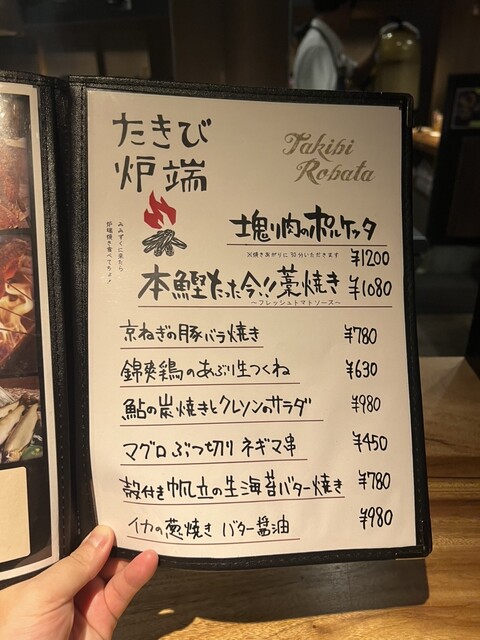 たきび
炉端
Takibi
Robata
みみずくに来たら
炉端焼き食べてちょ!
塊り肉のポルケッタ
※焼きあがりに30分いただきます
¥1200
本鰹たった今!!藁焼き ¥1080
～フレッシュトマトソース～
京ねぎの豚バラ焼き ¥780
錦爽鶏のあぶり生つくね ¥630
鮎の炭焼きとクレソンのサラダ ¥980
マグロぶつ切りネギマ串 ¥450
殻付き帆立の生海苔バター焼き ¥780
イカの葱焼き バター醤油 ¥980